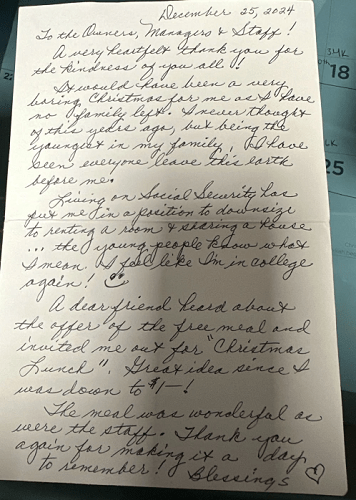 December 25, 2024
To the Owners, Managers & Staff!
A very heartfelt thank you for
the kindness of you all!
It would have been a very
boring, Christmas for me as I have
no family left. I never thought
of this years ago, but being the
youngest in my family, I have
seen everyone leave this earth
before me.
Living on Social Security has
put me in a position to downsize
to renting a room & sharing a house
... the young people know what
I mean. I feel like I'm in college
again!
A dear friend heard about
the offer of the free meal and
invited me out for "Christmas
Lunch". Great idea since I
was down to $1—!
The meal was wonderful as
were the staff. Thank you
again for making it a day
to remember! Blessings
22
18
25